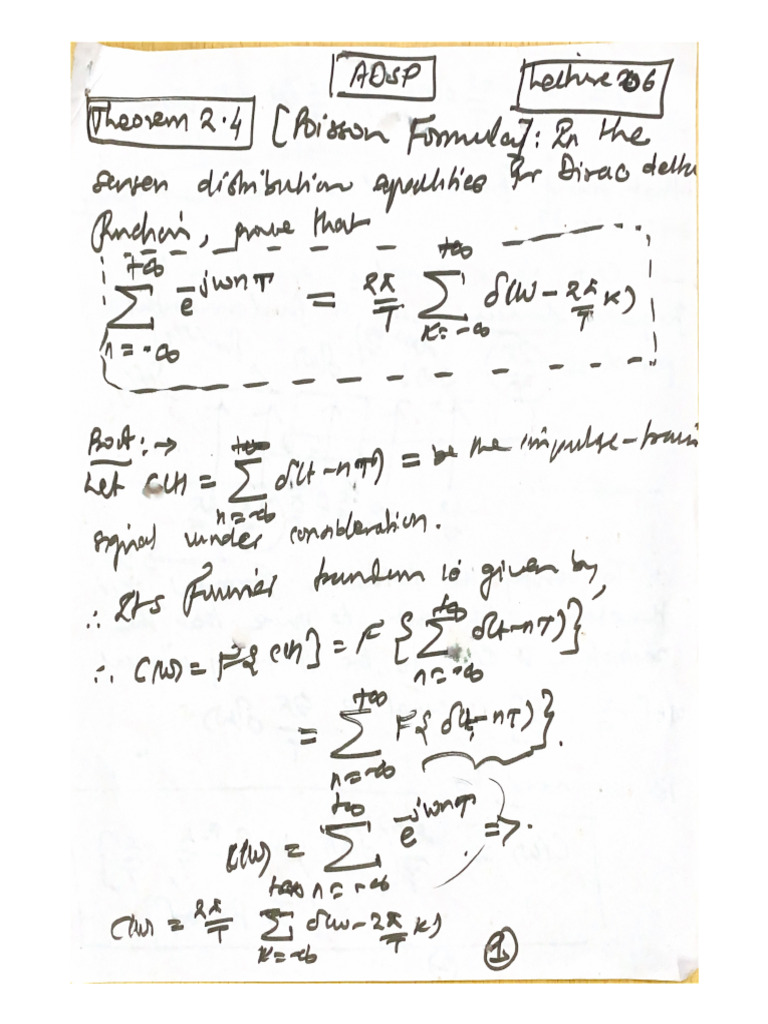 ADSP
Lecture 206
Theorem 2.4 [Poisson Formula]: In the
sensen distribution equalities for Dirac delta
Function, prove that
+∞ ∑ n=-∞ e^{-jωnT} = 2π/T +∞ ∑ k=-∞ δ(ω - 2π/T k)
Proof: →
Let C(t) = +∞ ∑ n=-∞ δ(t-nT) = be the impulse-train
signal under consideration.
∴ Its Fourier is given by,
∴ C(ω) = F{C(t)} = F{ +∞ ∑ n=-∞ δ(t-nT) }
= +∞ ∑ n=-∞ F{δ(t-nT)}.
C(ω) = +∞ ∑ n=-∞ e^{-jωnT} =>.
C(ω) = 2π/T +∞ ∑ k=-∞ δ(ω - 2π/T k)
1